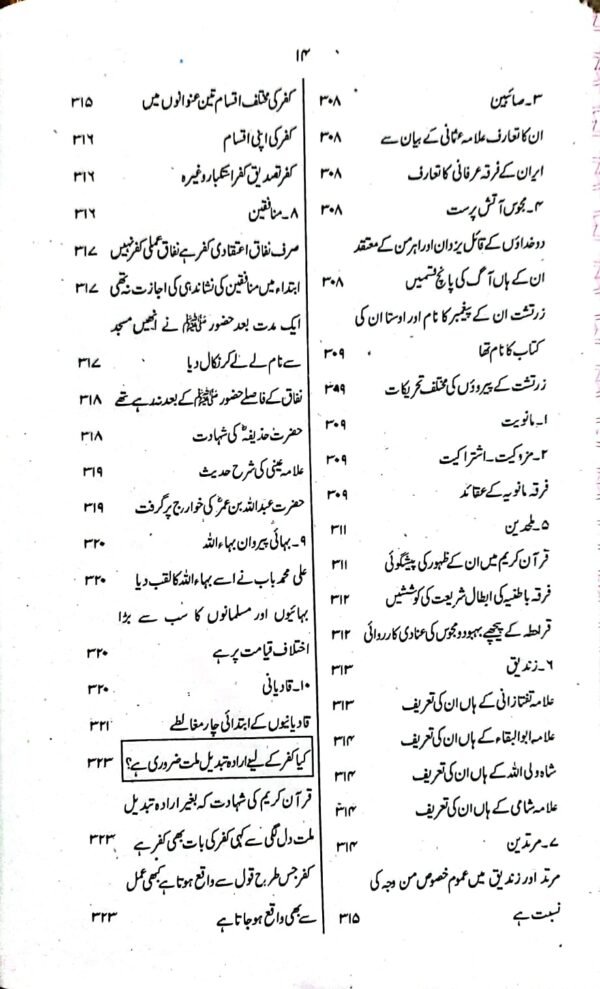 ۱۴
۳۔صائبین ۳۰۸
ان کا تعارف علامہ عثمانی کے بیان سے ۳۰۸
ایران کے فرقہ عرفانی کا تعارف ۳۰۸
۴۔مجوس آتش پرست ۳۰۸
دو خداؤں کے قائل یزدان اور اہرمن کے معتقد
ان کے ہاں آگ کی پانچ قسمیں ۳۰۸
زرتشت ان کے پیغمبر کا نام اور اوستا ان کی
کتاب کا نام تھا ۳۰۹
زرتشت کے پیروؤں کی مختلف تحریکات ۳۰۹
۱۔مانویت ۳۰۹
۲۔مزوکیت۔اشتراکیت ۳۰۹
فرقہ مانویہ کے عقائد ۳۰۹
۵۔ملحدین ۳۱۱
قرآن کریم میں ان کے ظہور کی پیشگوئی ۳۱۱
فرقہ باطنیہ کی ابطال شریعت کی کوششیں ۳۱۲
قرامطہ کے پیچھے یہود و مجوس کی عنادی کارروائی ۳۱۲
۶۔زندیق ۳۱۳
علامہ تفتازانی کے ہاں ان کی تعریف ۳۱۳
علامہ ابوالبقاء کے ہاں ان کی تعریف ۳۱۴
شاہ ولی اللہ کے ہاں ان کی تعریف ۳۱۴
علامہ شامی کے ہاں ان کی تعریف ۳۱۴
۷۔مرتدین ۳۱۴
مرتد اور زندیق میں عموم خصوص من وجہ کی
نسبت ہے ۳۱۵
کفر کی مختلف اقسام تین عنوانوں میں ۳۱۵
کفر کی اپنی اقسام ۳۱۶
کفر تصدیق کفر استکبار وغیرہ ۳۱۶
۸۔منافقین ۳۱۶
صرف نفاق اعتقادی کفر ہے نفاق عملی کفر نہیں ۳۱۷
ابتداء میں منافقین کی نشاندہی کی اجازت نہ تھی ۳۱۷
ایک مدت بعد حضور ﷺ نے انھیں مسجد
سے نام لے لے کر نکال دیا ۳۱۷
نفاق کے فاصلے حضور ﷺ کے بعد نہ رہے تھے ۳۱۸
حضرت حذیفہؓ کی شہادت ۳۱۸
علامہ عینی کی شرح حدیث ۳۱۹
حضرت عبداللہ بن عمرؓ کی خوارج پر گرفت ۳۱۹
۹۔بہائی پیروان بہاء اللہ ۳۲۰
علی محمد باب نے اسے بہاء اللہ کا لقب دیا ۳۲۰
بہائیوں اور مسلمانوں کا سب سے بڑا
اختلاف قیامت پر ہے ۳۲۰
۱۰۔قادیانی ۳۲۰
قادیانیوں کے ابتدائی چار مغالطے ۳۲۱
کیا کفر کے لیے ارادہ تبدیل ملت ضروری ہے؟ ۳۲۳
قرآن کریم کی شہادت کہ بغیر ارادہ تبدیل
ملت دل لگی سے کہی کفر کی بات بھی کفر ہے ۳۲۳
کفر جس طرح قول سے واقع ہوتا ہے کبھی عمل
سے بھی واقع ہو جاتا ہے ۳۲۳